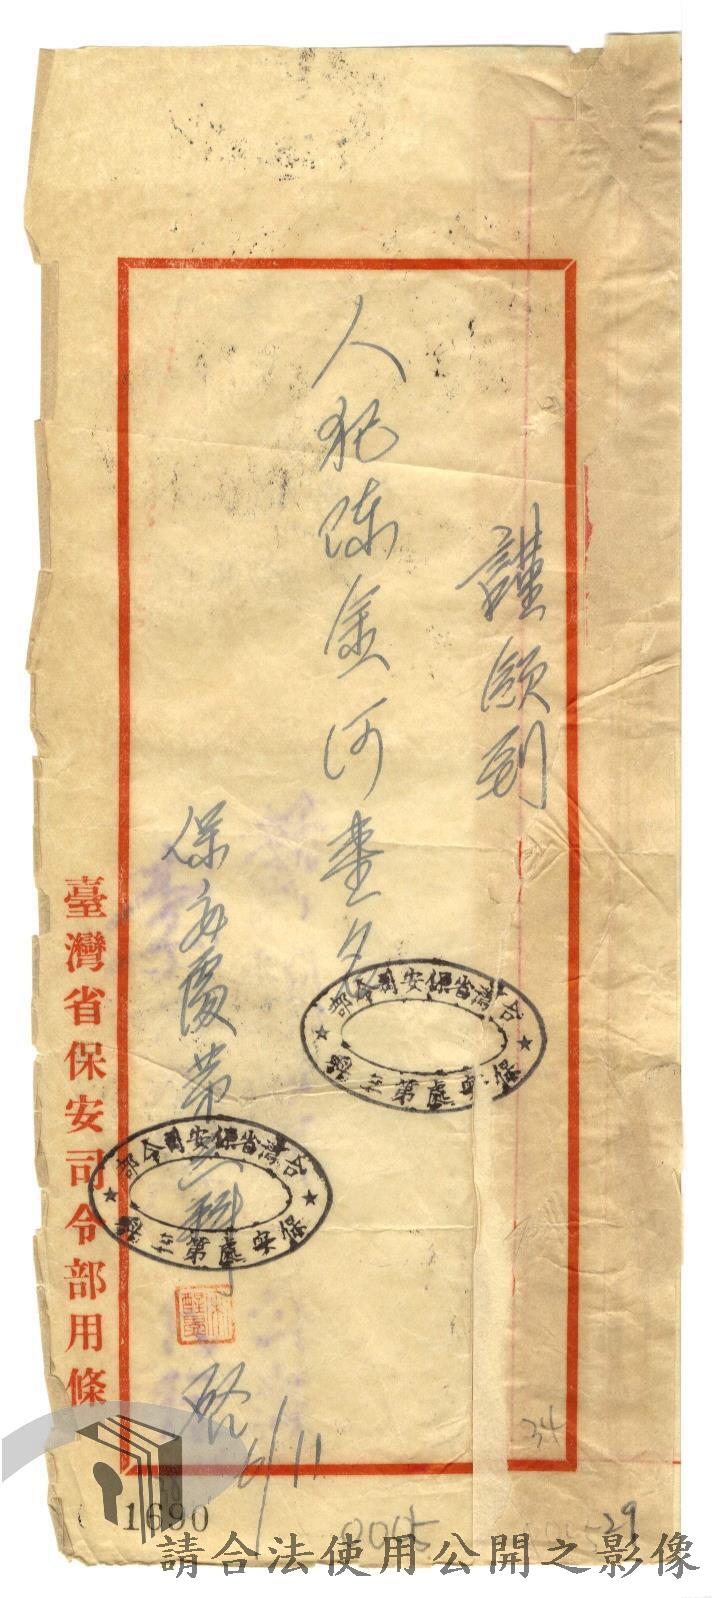 謹領到
人犯陳金河壹名
保安處第六科
啓
6/11
台灣省保安司令部
保安處第
台灣省保安司令部
保安處第
臺灣省保安司令部用條
34
29
0015
1690
請合法使用公開之影像